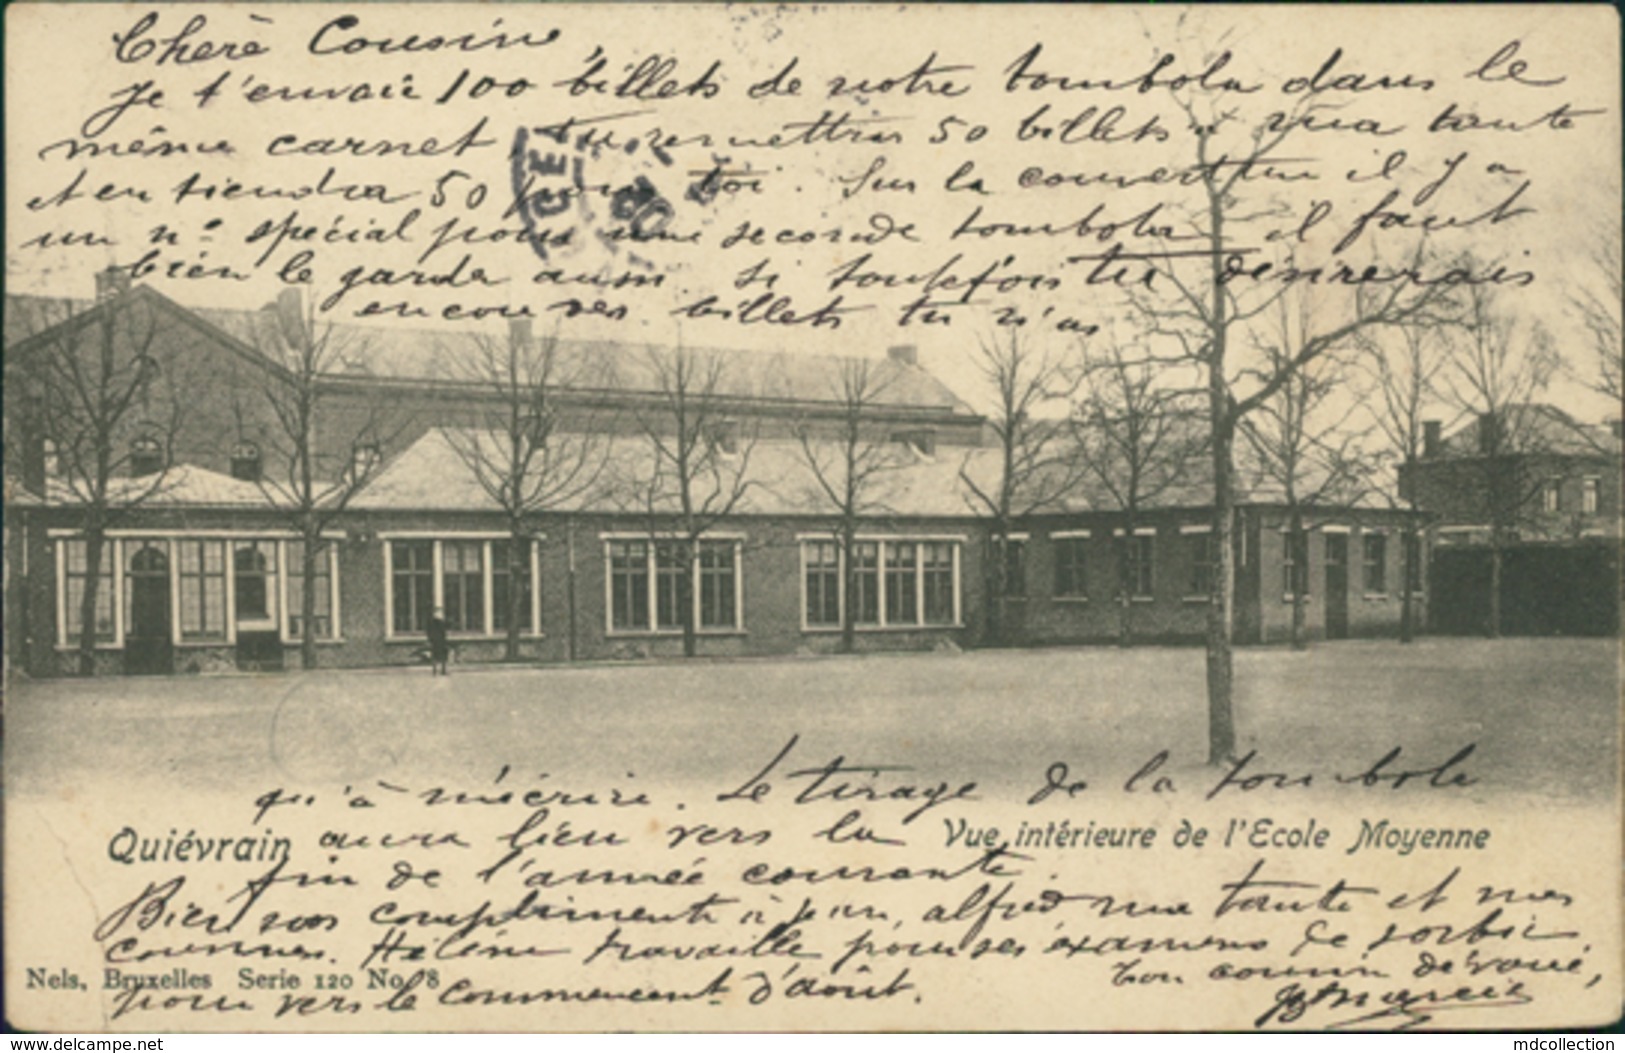 Chère Cousine,
Je t'envoie 100 billets de notre tombola dans le
même carnet, tu remettras 50 billets à ma tante
et en tiendra 50 pour toi. Sur la couverture il y a
un n° spécial pour une seconde tombola il faut
bien le garder aussi. Si toutefois tu désirerais
encore des billets tu n'as
qu'à m'écrire. Le tirage de la tombola
Quiévrain aura lieu vers la Vue intérieure de l'Ecole Moyenne
fin de l'année courante.
Bien vos compliments à Jean, alfred ma tante et mes
cousines. Hélène travaille pour ses examens de sortie
Nels, Bruxelles Serie 120 No. 8
pour vers le commencent d'août.
Ton cousin dévoué,
www.delcampe.net
mdcollection